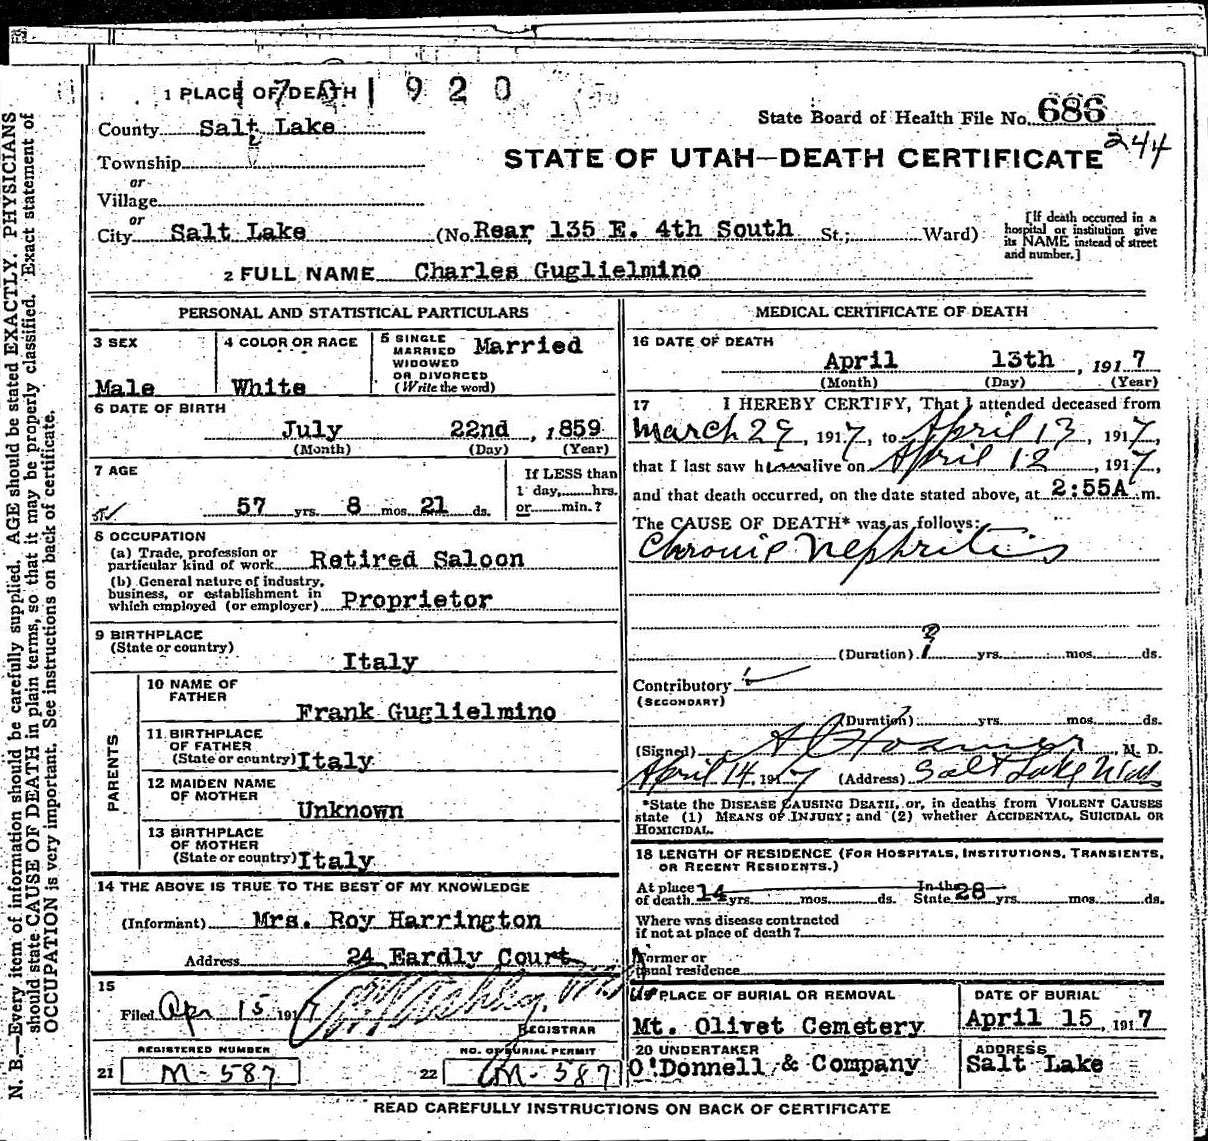 1 PLACE OF DEATH 1 7 0 1 9 2 0
State Board of Health File No. 686
County Salt Lake
244
STATE OF UTAH—DEATH CERTIFICATE
Township
or
Village
or
City Salt Lake (No. Rear 135 E. 4th South St.; Ward)
[If death occurred in a hospital or institution give its NAME instead of street and number.]
2 FULL NAME Charles Guglielmino
PERSONAL AND STATISTICAL PARTICULARS
3 SEX
Male
4 COLOR OR RACE
White
5 SINGLE
MARRIED
WIDOWED
OR DIVORCED
(Write the word)
Married
6 DATE OF BIRTH
July 22nd, 1859
(Month) (Day) (Year)
7 AGE
57 yrs. 8 mos. 21 ds.
If LESS than
1 day, hrs.
or min.?
8 OCCUPATION
(a) Trade, profession or
particular kind of work Retired Saloon
(b) General nature of industry,
business, or establishment in
which employed (or employer) Proprietor
9 BIRTHPLACE
(State or country)
Italy
PARENTS
10 NAME OF
FATHER
Frank Guglielmino
11 BIRTHPLACE
OF FATHER
(State or country) Italy
12 MAIDEN NAME
OF MOTHER
Unknown
13 BIRTHPLACE
OF MOTHER
(State or country) Italy
14 THE ABOVE IS TRUE TO THE BEST OF MY KNOWLEDGE
(Informant) Mrs. Roy Harrington
Address 24 Eardly Court
15
Filed Apr 15 1917
REGISTRAR
REGISTERED NUMBER
21 M-587
NO. OF BURIAL PERMIT
22 M-587
MEDICAL CERTIFICATE OF DEATH
16 DATE OF DEATH
April 13th, 1917
(Month) (Day) (Year)
17 I HEREBY CERTIFY, That I attended deceased from
March 29, 1917, to April 13, 1917,
that I last saw him alive on April 12, 1917,
and that death occurred, on the date stated above, at 2:55A m.
The CAUSE OF DEATH* was as follows:
Chronic Nephritis
(Duration) ? yrs. mos. ds.
Contributory
(SECONDARY)
(Duration) yrs. mos. ds.
(Signed) M. D.
April 14 1917 (Address) Salt Lake Utah
*State the DISEASE CAUSING DEATH, or, in deaths from VIOLENT CAUSES
state (1) MEANS OF INJURY; and (2) whether ACCIDENTAL, SUICIDAL OR
HOMICIDAL.
18 LENGTH OF RESIDENCE (FOR HOSPITALS, INSTITUTIONS, TRANSIENTS,
OR RECENT RESIDENTS.)
At place
of death 14 yrs. mos. ds.
In the
State 28 yrs. mos. ds.
Where was disease contracted
if not at place of death?
Former or
usual residence
19 PLACE OF BURIAL OR REMOVAL
Mt. Olivet Cemetery
DATE OF BURIAL
April 15, 1917
20 UNDERTAKER
O'Donnell & Company
ADDRESS
Salt Lake
READ CAREFULLY INSTRUCTIONS ON BACK OF CERTIFICATE
N. B.—Every item of information should be carefully supplied. AGE should be stated EXACTLY. PHYSICIANS
should state CAUSE OF DEATH in plain terms, so that it may be properly classified. Exact statement of
OCCUPATION is very important. See instructions on back of certificate.